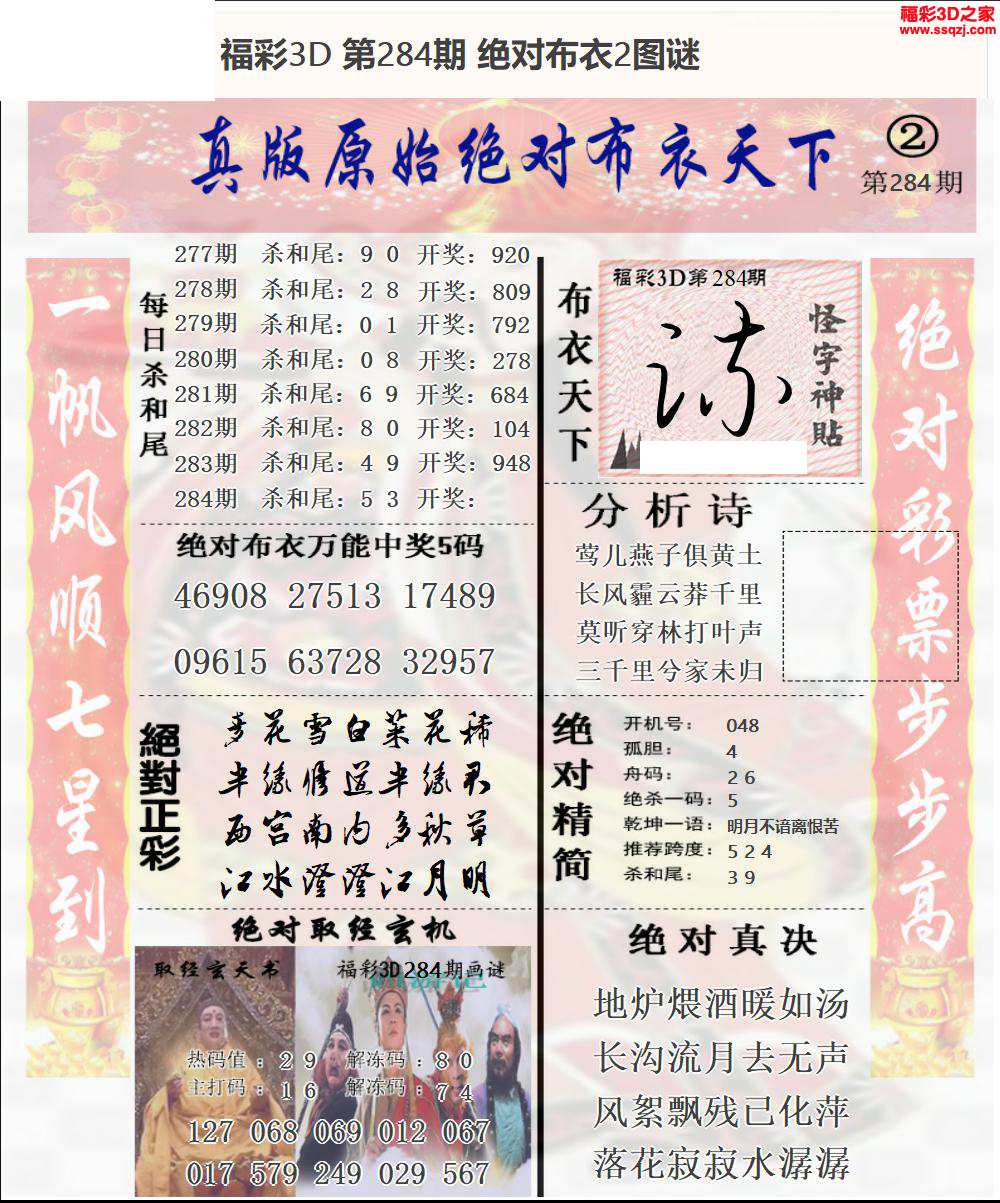 福彩3D之家
www.ssqzj.com
福彩3D 第284期 绝对布衣2图谜
真版原始绝对布衣天下
②
第284期
一帆风顺七星到
每日杀和尾
277期 杀和尾：9 0 开奖：920
278期 杀和尾：2 8 开奖：809
279期 杀和尾：0 1 开奖：792
280期 杀和尾：0 8 开奖：278
281期 杀和尾：6 9 开奖：684
282期 杀和尾：8 0 开奖：104
283期 杀和尾：4 9 开奖：948
284期 杀和尾：5 3 开奖：
绝对布衣万能中奖5码
46908 27513 17489
09615 63728 32957
絕對正彩
麦花雪白菜花稀
半缘修道半缘君
西宫南内多秋草
江水澄澄江月明
绝对取经玄机
取经玄天书
福彩3D284期画谜
热码值：2 9 解冻码：8 0
主打码：1 6 解冻码：7 4
127 068 069 012 067
017 579 249 029 567
布衣天下
福彩3D第284期
怪字神貼
分析诗
莺儿燕子俱黄土
长风霾云莽千里
莫听穿林打叶声
三千里兮家未归
绝对精简
开机号：048
孤胆：4
舟码：2 6
绝杀一码：5
乾坤一语：明月不谙离恨苦
推荐跨度：5 2 4
杀和尾：3 9
绝对真决
地炉煨酒暖如汤
长沟流月去无声
风絮飘残已化萍
落花寂寂水潺潺
绝对彩票步步高